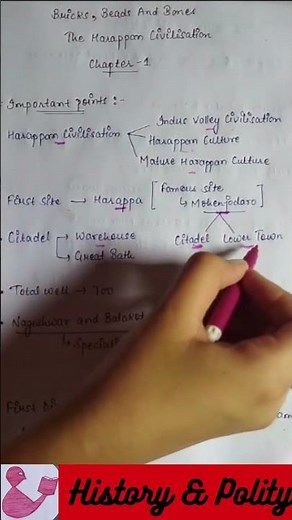 Bricks, Beads And Bones
The Harappan Civilisation
Chapter-1
Important points :-
Harappan Civilisation
Indus Valley Civilisation
Harappan Culture
Mature Harappan Culture
First site → Harappa [Famous site
↳ Mohenjodaro]
Citadel Lower Town
Citadel → Warehouse
→ Great Bath
• Total well → 700
• Nageshwar and Balakot
↳ Special
First
History & Polity